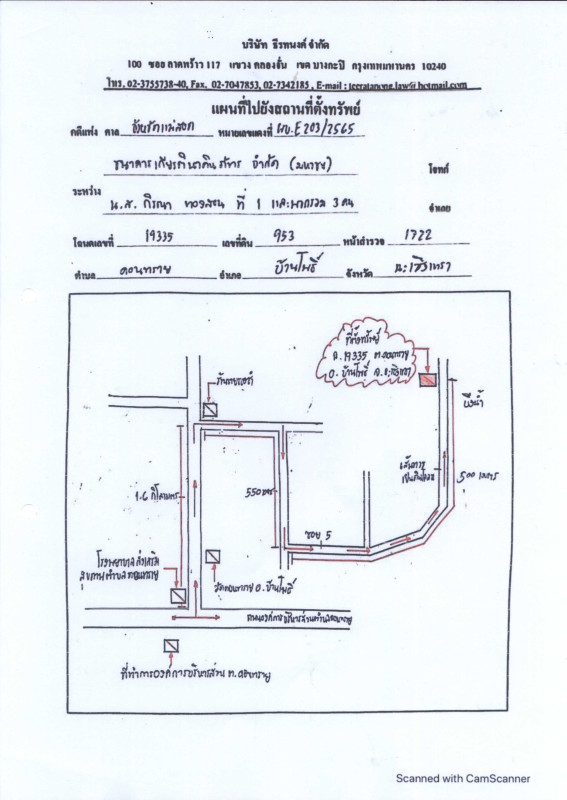 บริษัท ธีรทนงค์ จำกัด
100 ซอย ลาดพร้าว 117 แขวง คลองจั่น เขต บางกะปิ กรุงเทพมหานคร 10240
โทร. 02-3755738-40, Fax. 02-7047853, 02-7342185 , E-mail : teeratanong.law@hotmail.com
แผนที่ไปยังสถานที่ตั้งทรัพย์
คดีแพ่ง ศาล หมายเลขแดงที่ ผบ.E203/2565
ธนาคารเกียรตินาคินภัทร จำกัด (มหาชน) โจทก์
ระหว่าง
น.ส. ที่ 1 และพวกรวม 3 คน จำเลย
โฉนดเลขที่ 19335 เลขที่ดิน 953 หน้าสำรวจ 1722
ตำบล ดอนทราย อำเภอ บ้านโพธิ์ จังหวัด ฉะเชิงเทรา
ที่ตั้งทรัพย์
ฉ.19335 ต.ดอนทราย
อ.บ้านโพธิ์ จ.ฉะเชิงเทรา
บึงน้ำ
1.6 กิโลเมตร
550 เมตร
500 เมตร
ซอย 5
โรงพยาบาลส่งเสริม
สุขภาพตำบลดอนทราย
วัดดอนทราย อ.บ้านโพธิ์
ถนนองค์การบริหารส่วนตำบลดอนทราย
ที่ทำการองค์การบริหารส่วน ต.ดอนทราย
Scanned with CamScanner